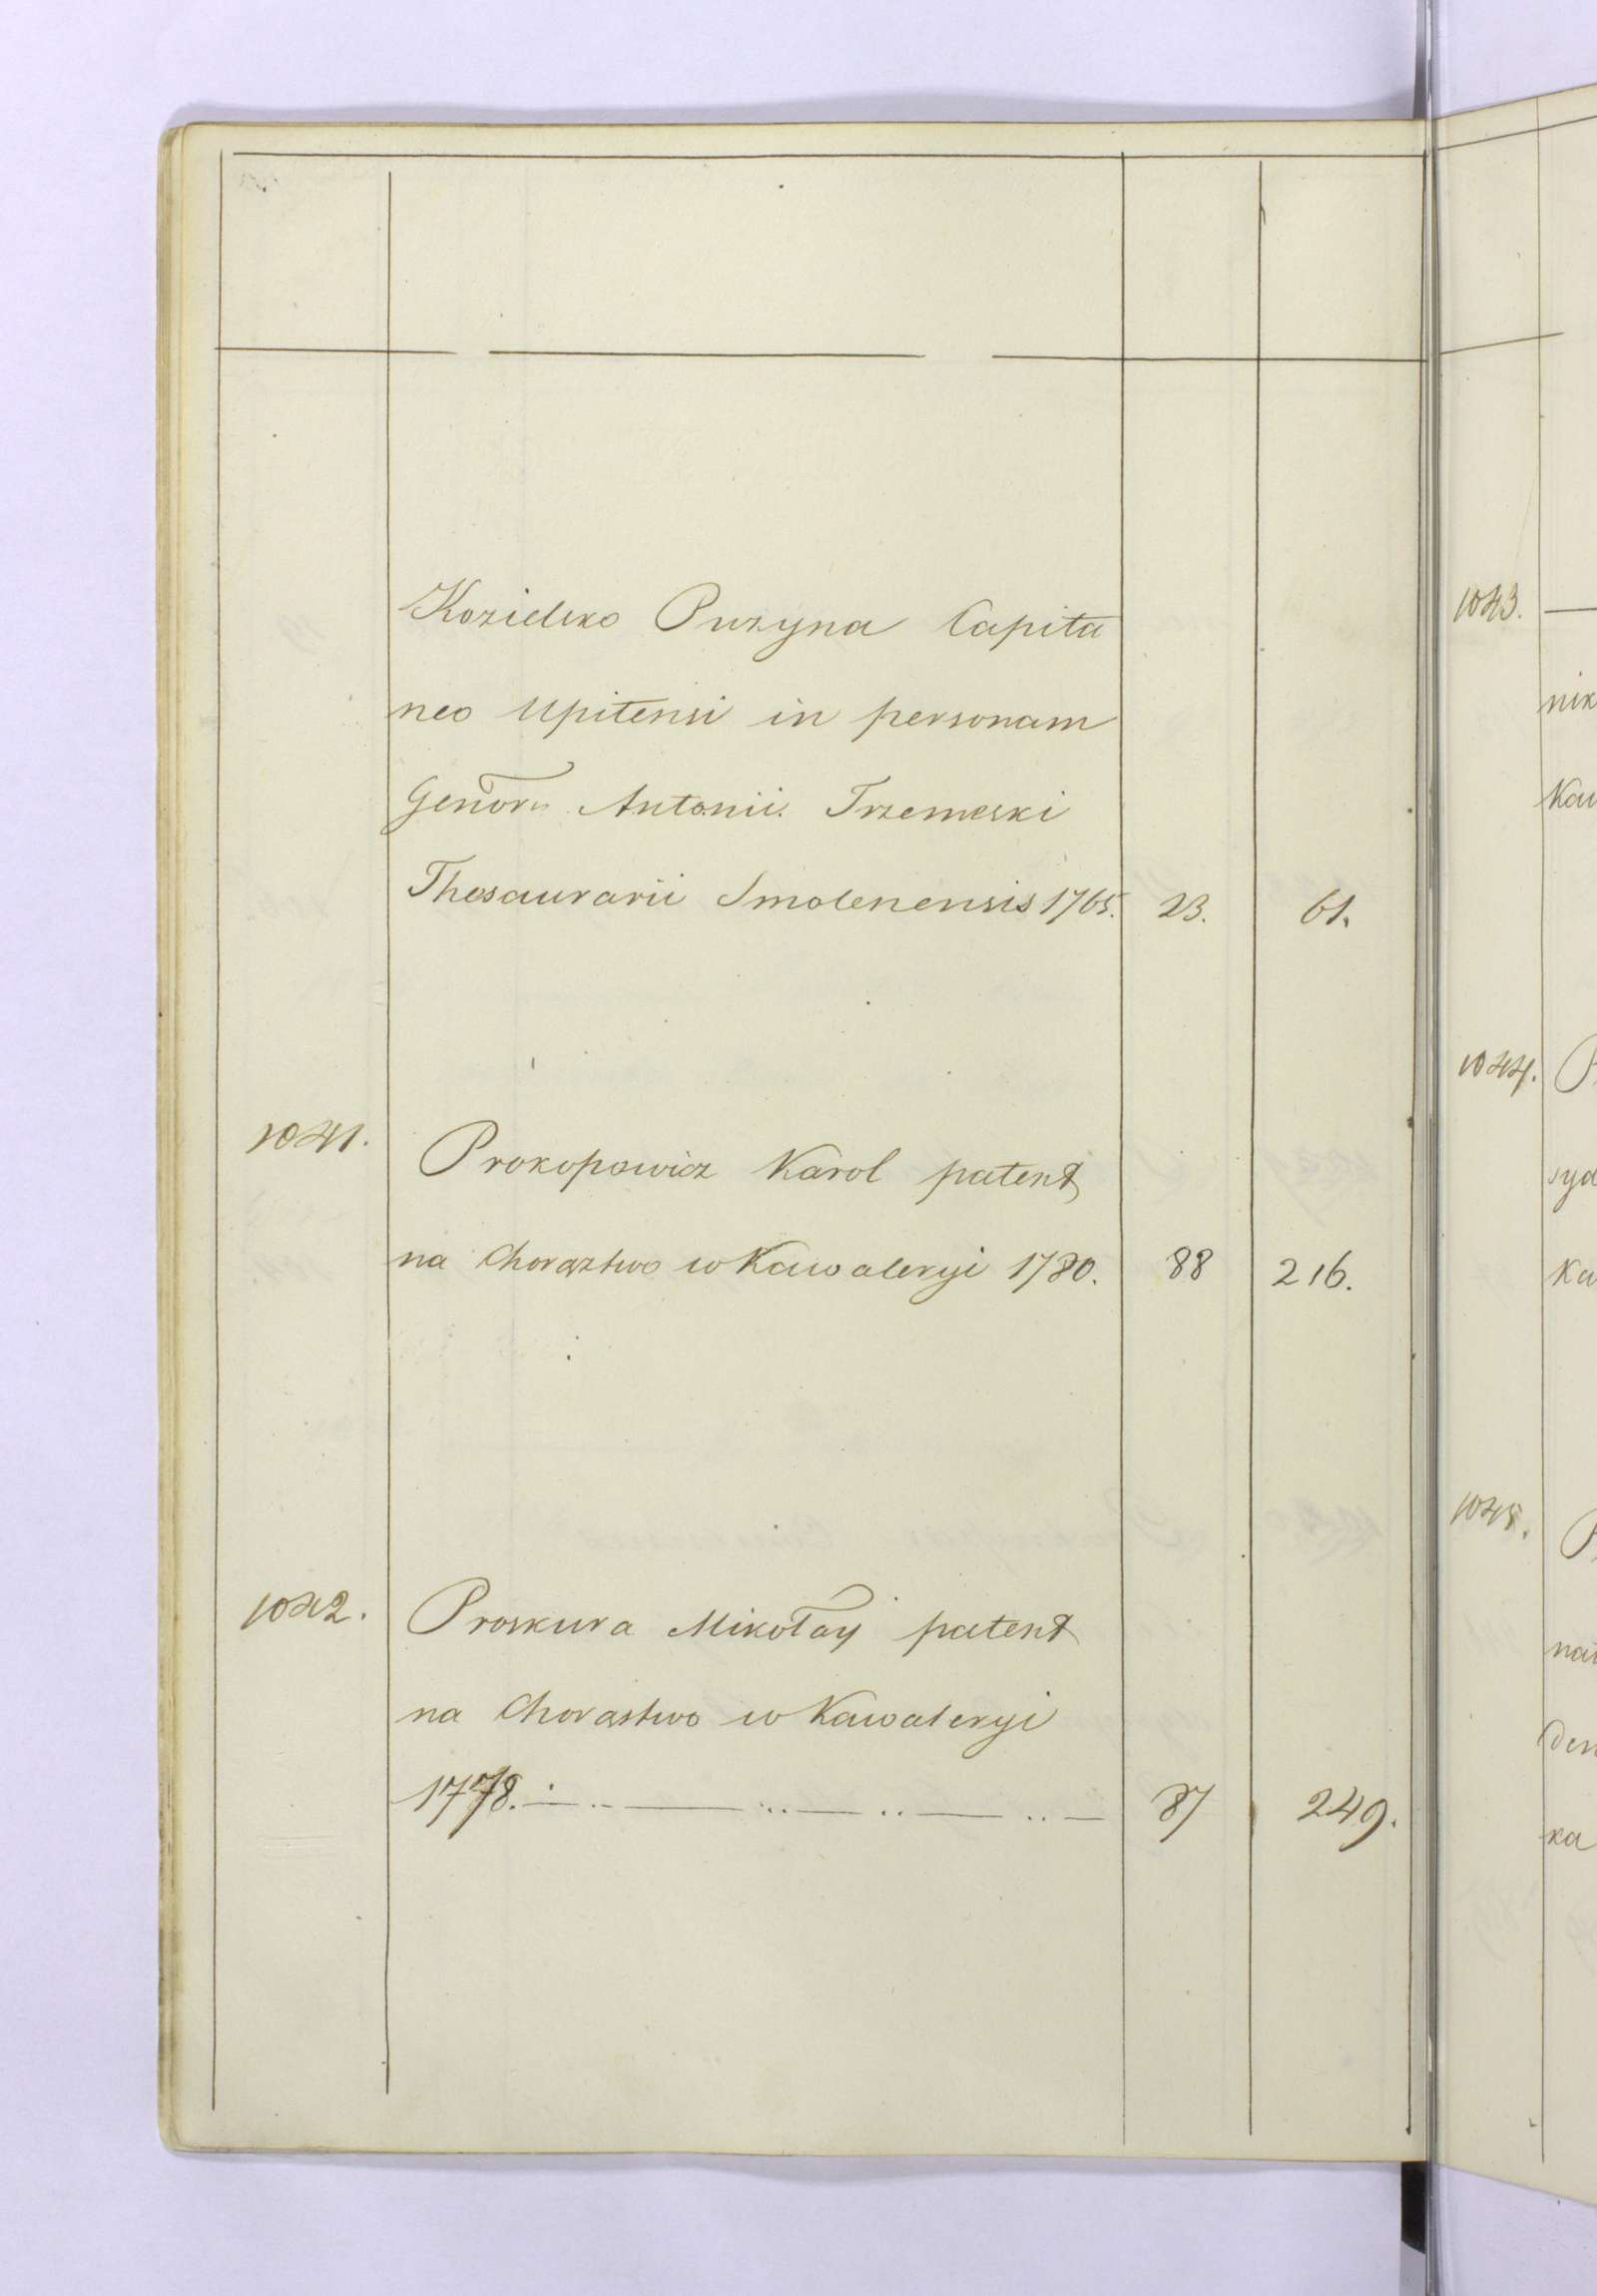 Kozielsko Puzyna Capita
neo Upitensi in personam
Antonii Trzemeski
Thesaurarii Smolenensis 1765. 23. 61.
1041. Prokopowicz Karol patent
na Chorąztwo w Kawaleryi 1780. 88 216.
1042. Proskura Mikołay patent
na Chorąstwo w Kawaleryi
1778. 87 249.
1043.
nik
1044.
1045.